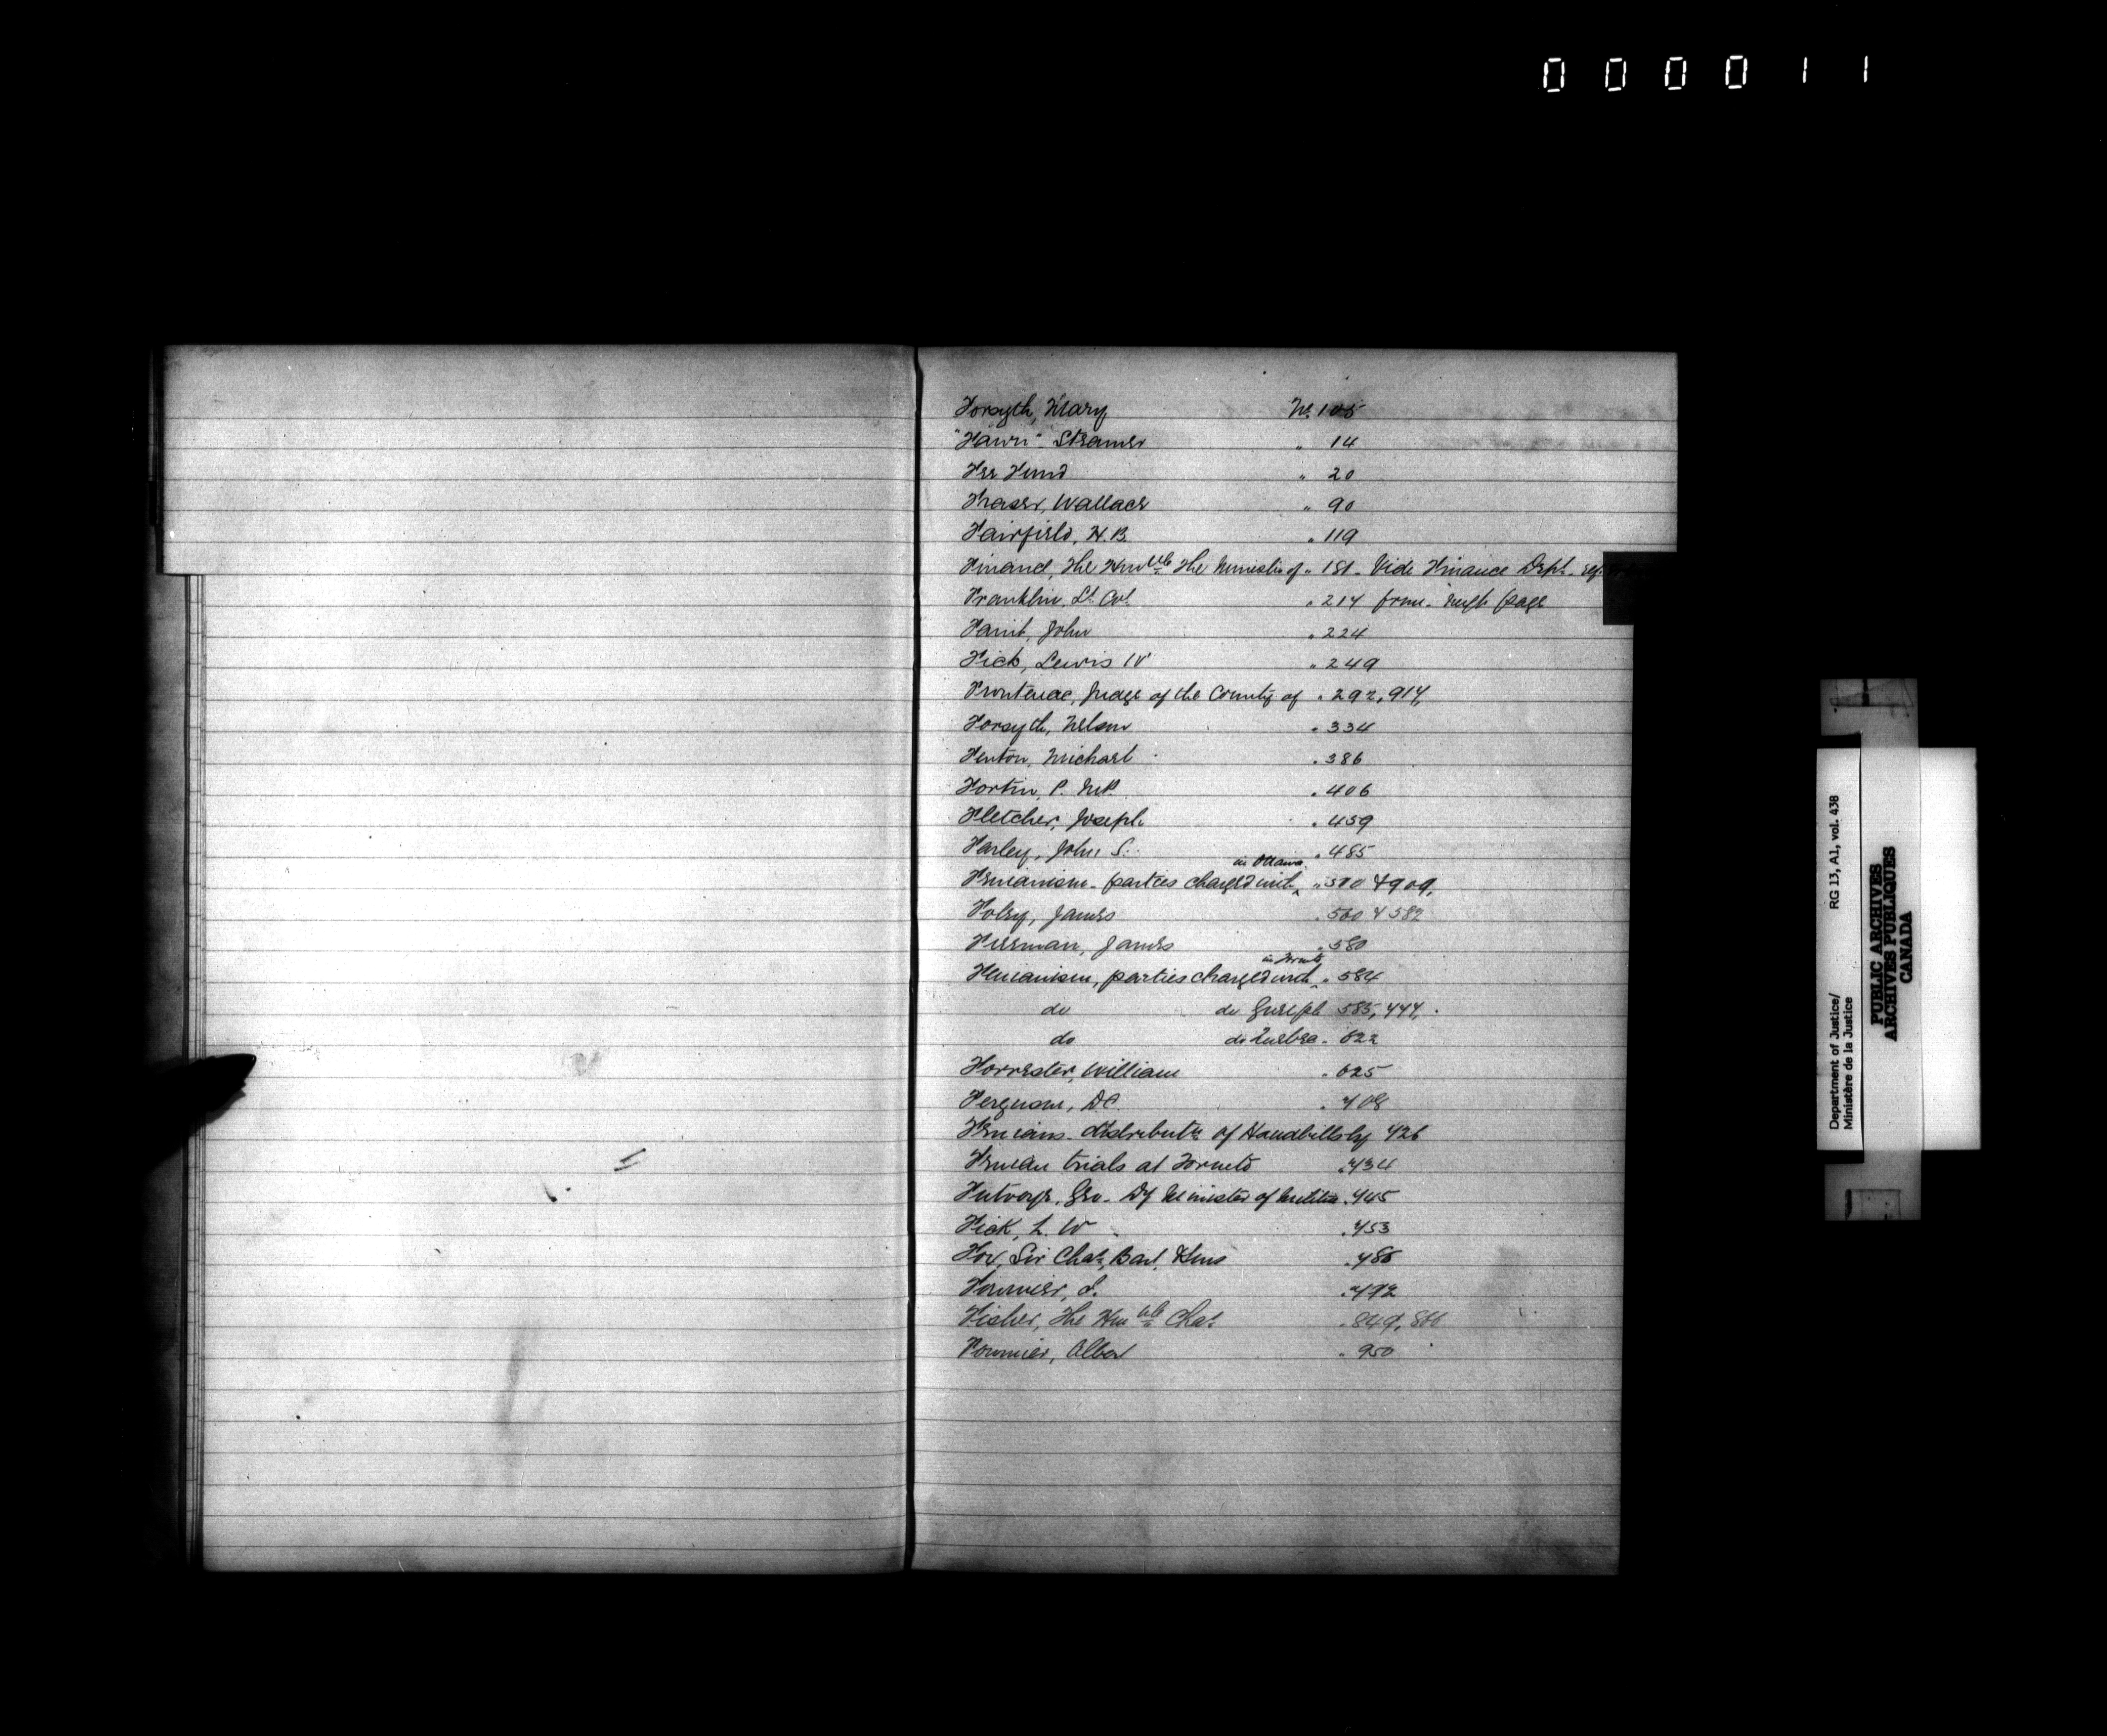 000011
Forsyth, Mary No. 105
"Fawn" Steamer " 14
Fee Fund " 20
Fraser, Wallace " 90
Fairfield, H.B. " 119
Finance, The Honble The Minister of " 181 - Vide Finance Dept.
Franklin, Lt. Col. " 214 from next page
John " 224
Fick, Lewis W " 249
Frontenac, Judge of the County of " 292, 914,
Forsyth, Nelson " 334
Fenton, Michael " 386
Fortin, P. M.P. " 406
Fletcher, Joseph " 459
Farley, John S. " 485
Fenianism - parties charged with in Ottawa " 570 & 909,
Foley, James " 560 & 582
James " 580
Fenianism, parties charged with in Toronto " 584
do do Guelph 585, 777,
do do Quebec - 622
Forrester, William " 625
Ferguson, D.C. " 708
Fenians - distributn of Handbills by 726
Fenian trials at Toronto " 734
Futvoye, Geo - Dy Minister of Militia " 745
Fick, L. W " 753
Fox, Sir Chas, Bart, & Sons " 786
Fournier, " 792
Fisher, The Honble Chas " 849, 866
Fournier, " 950
Department of Justice/ RG 13, A1, vol. 438
Ministère de la Justice
PUBLIC ARCHIVES
ARCHIVES PUBLIQUES
CANADA